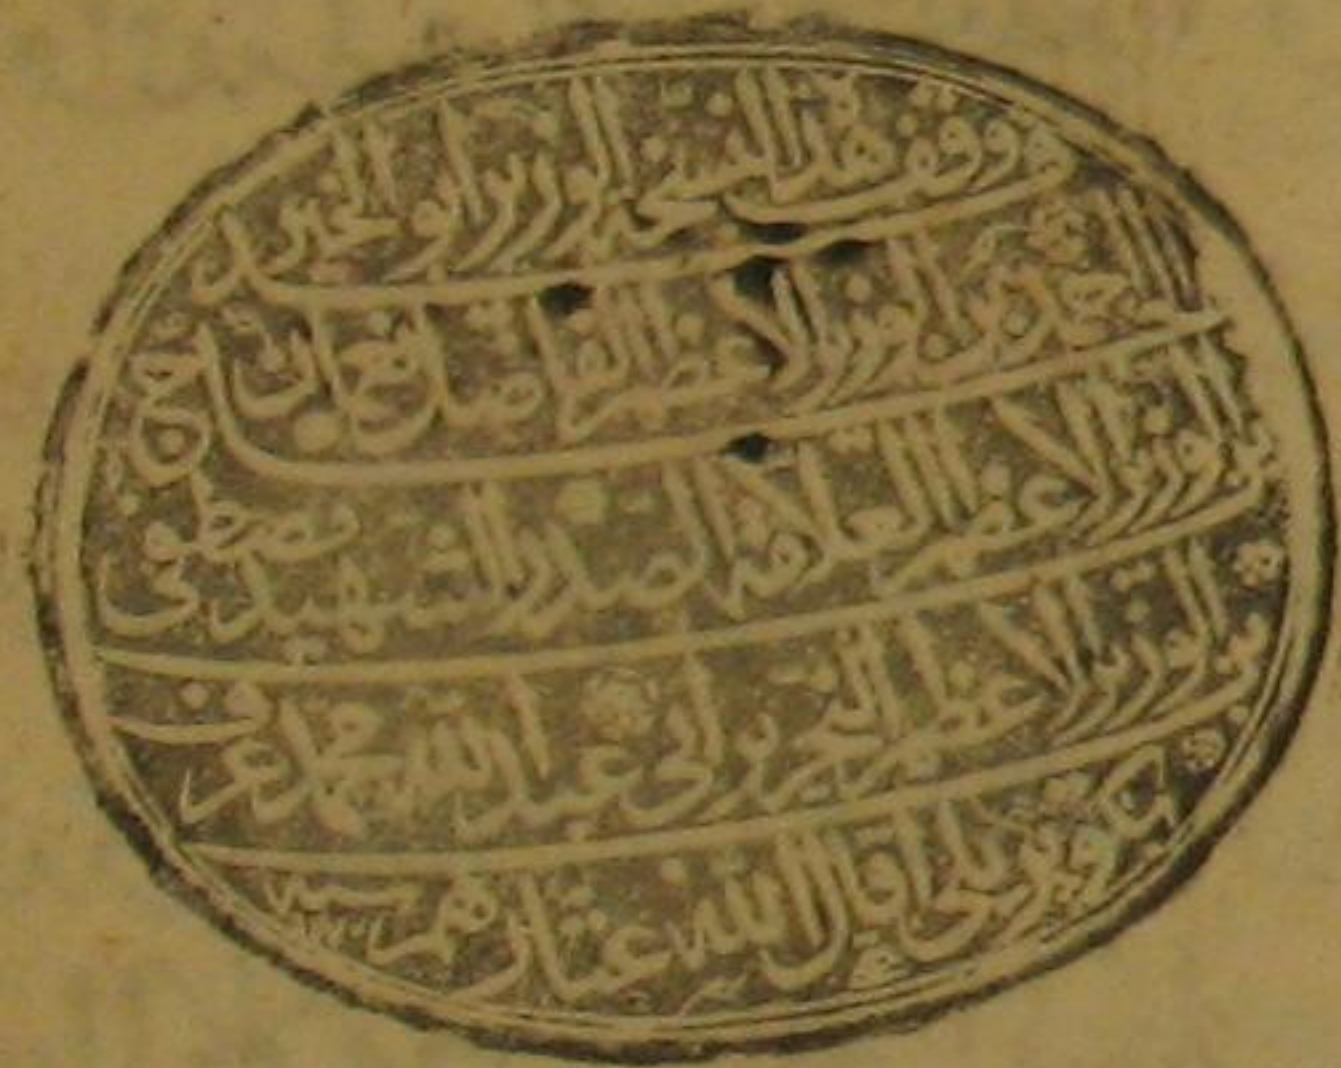 قد وقف هذا النسخة الوزير أبو الخير
الحاج أحمد بن الوزير الأعظم الفاضل نعمان
بن الوزير الأعظم العلامة الصدر الشهيد مصطفى
بن الوزير الأعظم النحرير أبي عبد الله محمد عرف
بكوبريلي أقال الله عثارهم سنة